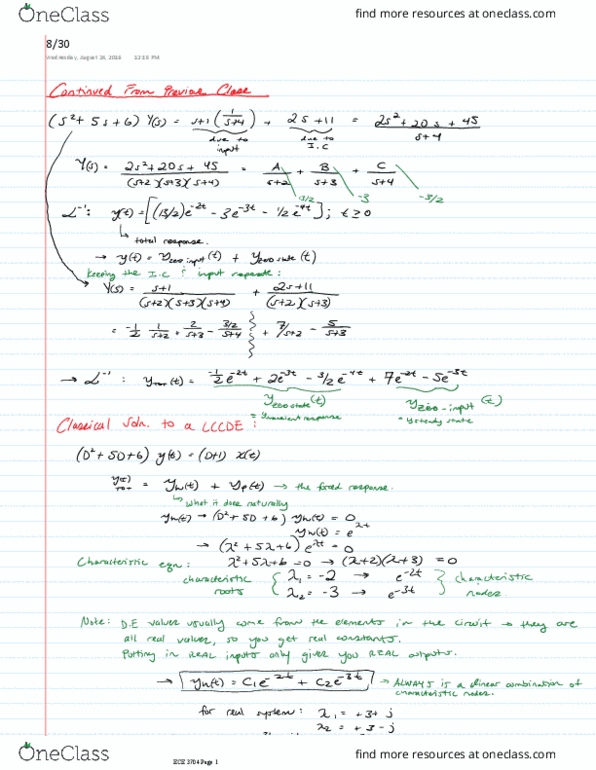 OneClass
find more resources at oneclass.com
8/30
Wednesday, August 24, 2016 12:28 PM
Continued From Previous Class
(s²+ 5s+6) Y(s) = s+1 (1/s+4) + 2s+11 = 2s²+20s+45 / s+4
due to input
due to I.C
Y(s) = 2s²+20s+45 / (s+2)(s+3)(s+4) = A/s+2 + B/s+3 + C/s+4
13/2 -3 -3/2
L⁻¹: y(t) = [(13/2)e^-2t - 3e^-3t - 1/2 e^-4t] ; t≥0
total response.
→ y(t) = y zero input (t) + y zero state (t)
keeping the I.C & input separate:
Y(s) = s+1 / (s+2)(s+3)(s+4) + 2s+11 / (s+2)(s+3)
= -1/2 1/s+2 + 2/s+3 - 3/2/s+4 + 7/s+2 - 5/s+3
→ L⁻¹ : y (t) = -1/2 e^-2t + 2e^-3t - 3/2 e^-4t + 7e^-2t - 5e^-3t
y zero state (t)
= y transient response
y zero-input (t)
= y steady state
Classical Soln. to a LCCDE :
(D²+ 5D+6) y(t) = (D+1) x(t)
y(t) = yn(t) + yp(t) → the forced response.
what it does naturally
yn(t) → (D²+ 5D + 6) yn(t) = 0
yn(t) = e^λt
→ (λ²+ 5λ+6) e^λt = 0
Characteristic eqn: λ²+5λ+6=0 → (λ+2)(λ+3) = 0
characteristic roots { λ1 = -2 → e^-2t
λ2 = -3 → e^-3t } characteristic modes.
Note: D.E values usually come from the elements in the circuit → they are
all real values, so you get real constants.
Putting in REAL inputs only gives you REAL outputs.
→ yn(t) = C1e^-2t + C2e^-3t → ALWAYS is a linear combination of characteristic modes.
for real system: λ1 = +3+ j
λ2 = +3 - j
OneClass
ECE 3704 Page 1
find more resources at oneclass.com